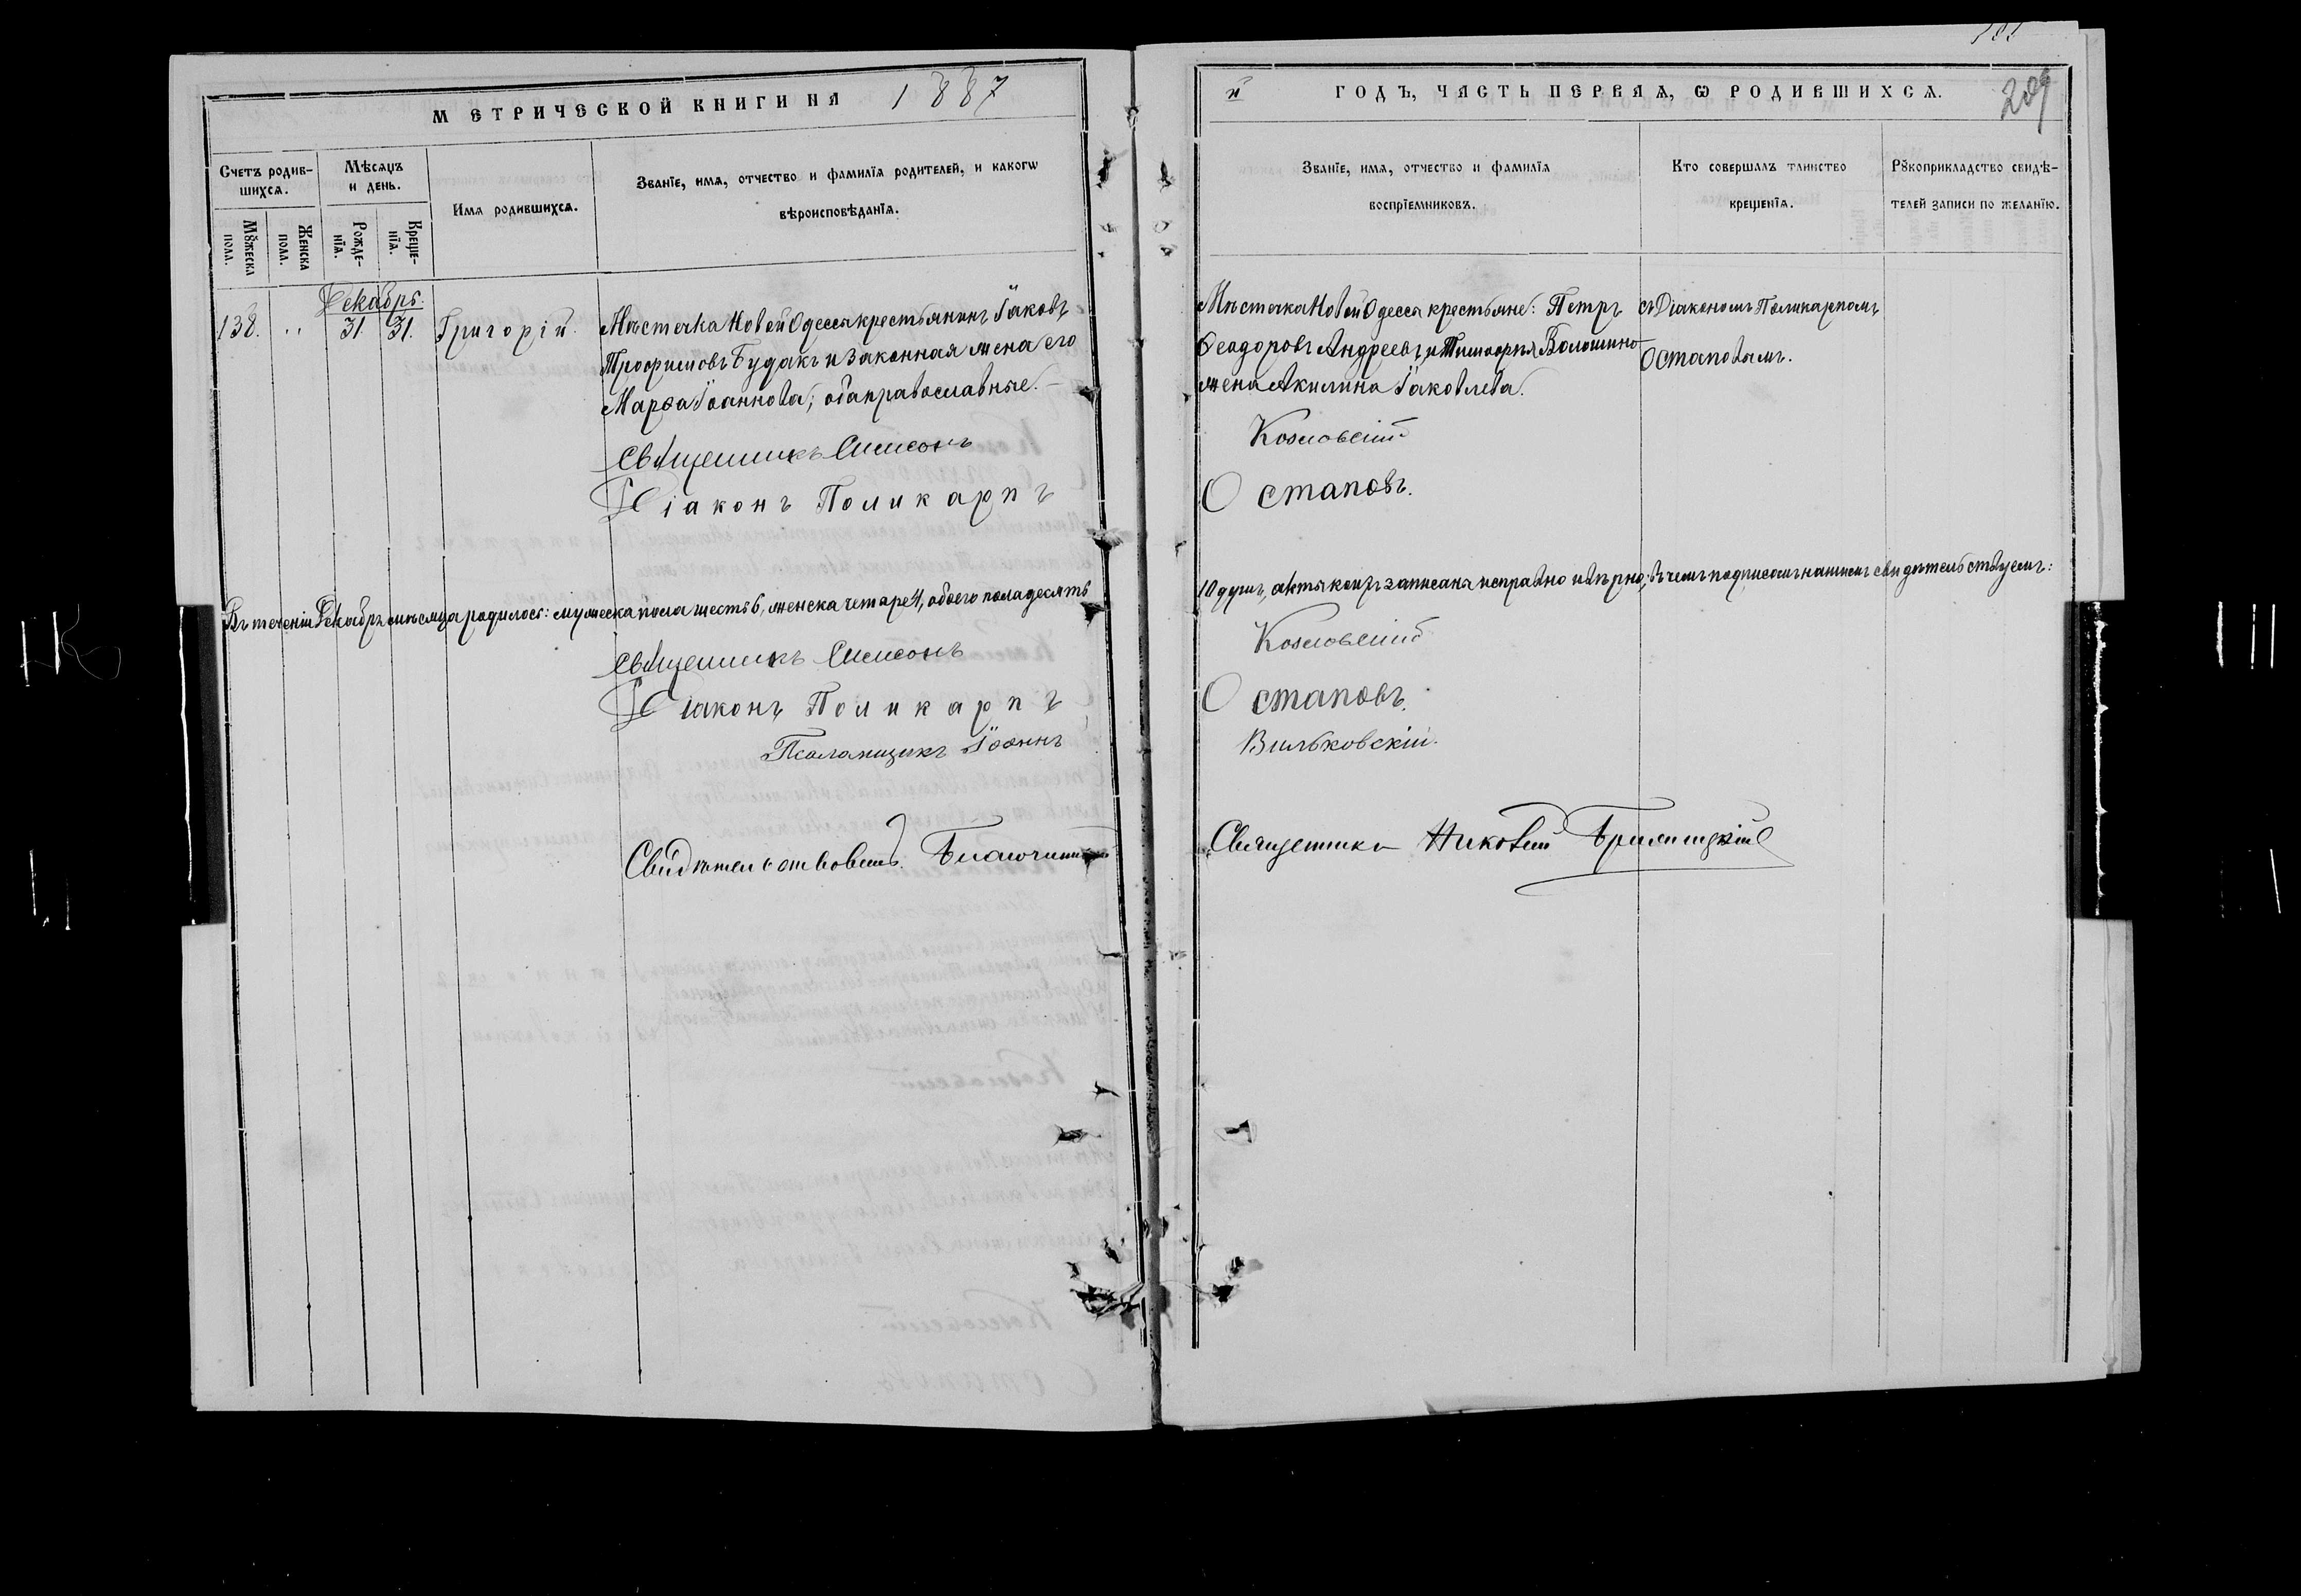 МЕТРИЧЕСКОЙ КНИГИ НА 1887
Счетъ родив-
шихся.
Мѣсяцъ
и день.
Имя родившихся.
Званїе, имя, отчество и фамилїя родителей, и какогѡ
вѣроисповѣданїя.
Мꙋжеска
пола.
Женска
пола.
Рожде-
нїя.
Креще-
нїя.
Декабрь.
138. " 31. 31. Григорій.
Мѣстечка Новой Одессы крестьянинъ Іаковъ
Трофимовъ Будакъ и законная жена его
Марѳа Іоаннова; оба православные. –
Священникъ Симеонъ
Діаконъ Поликарпъ
Въ теченіи Декабрь мѣсяца родилось: мужеска пола шесть 6, женска четыре 4, обоего пола десять
Священникъ Симеонъ
Діаконъ Поликарпъ
Псаломщикъ Іоаннъ
Свидѣтельствовалъ. Благочинный
й ГОДЪ, ЧАСТЬ ПЕРВАЯ, Ѡ РОДИВШИХСЯ.
209
Званїе, имя, отчество и фамилїя
воспрїемниковъ.
Кто совершалъ таинство
крещенїя.
Рꙋкоприкладство свидѣ-
телей записи по желанїю.
Мѣстечка Новой Одессы крестьяне: Петръ
Ѳеодоровъ Андреевъ и Тимоѳея Волошина
жена Акилина Іаковлева.
съ Діакономъ Поликарпомъ
Остаповымъ.
Козловскій
Остаповъ.
10 душъ, акты коихъ записаны исправно и вѣрно, въ чемъ подписомъ нашимъ свидѣтельствуемъ:
Козловскій
Остаповъ.
Вильковскій.
Священникъ